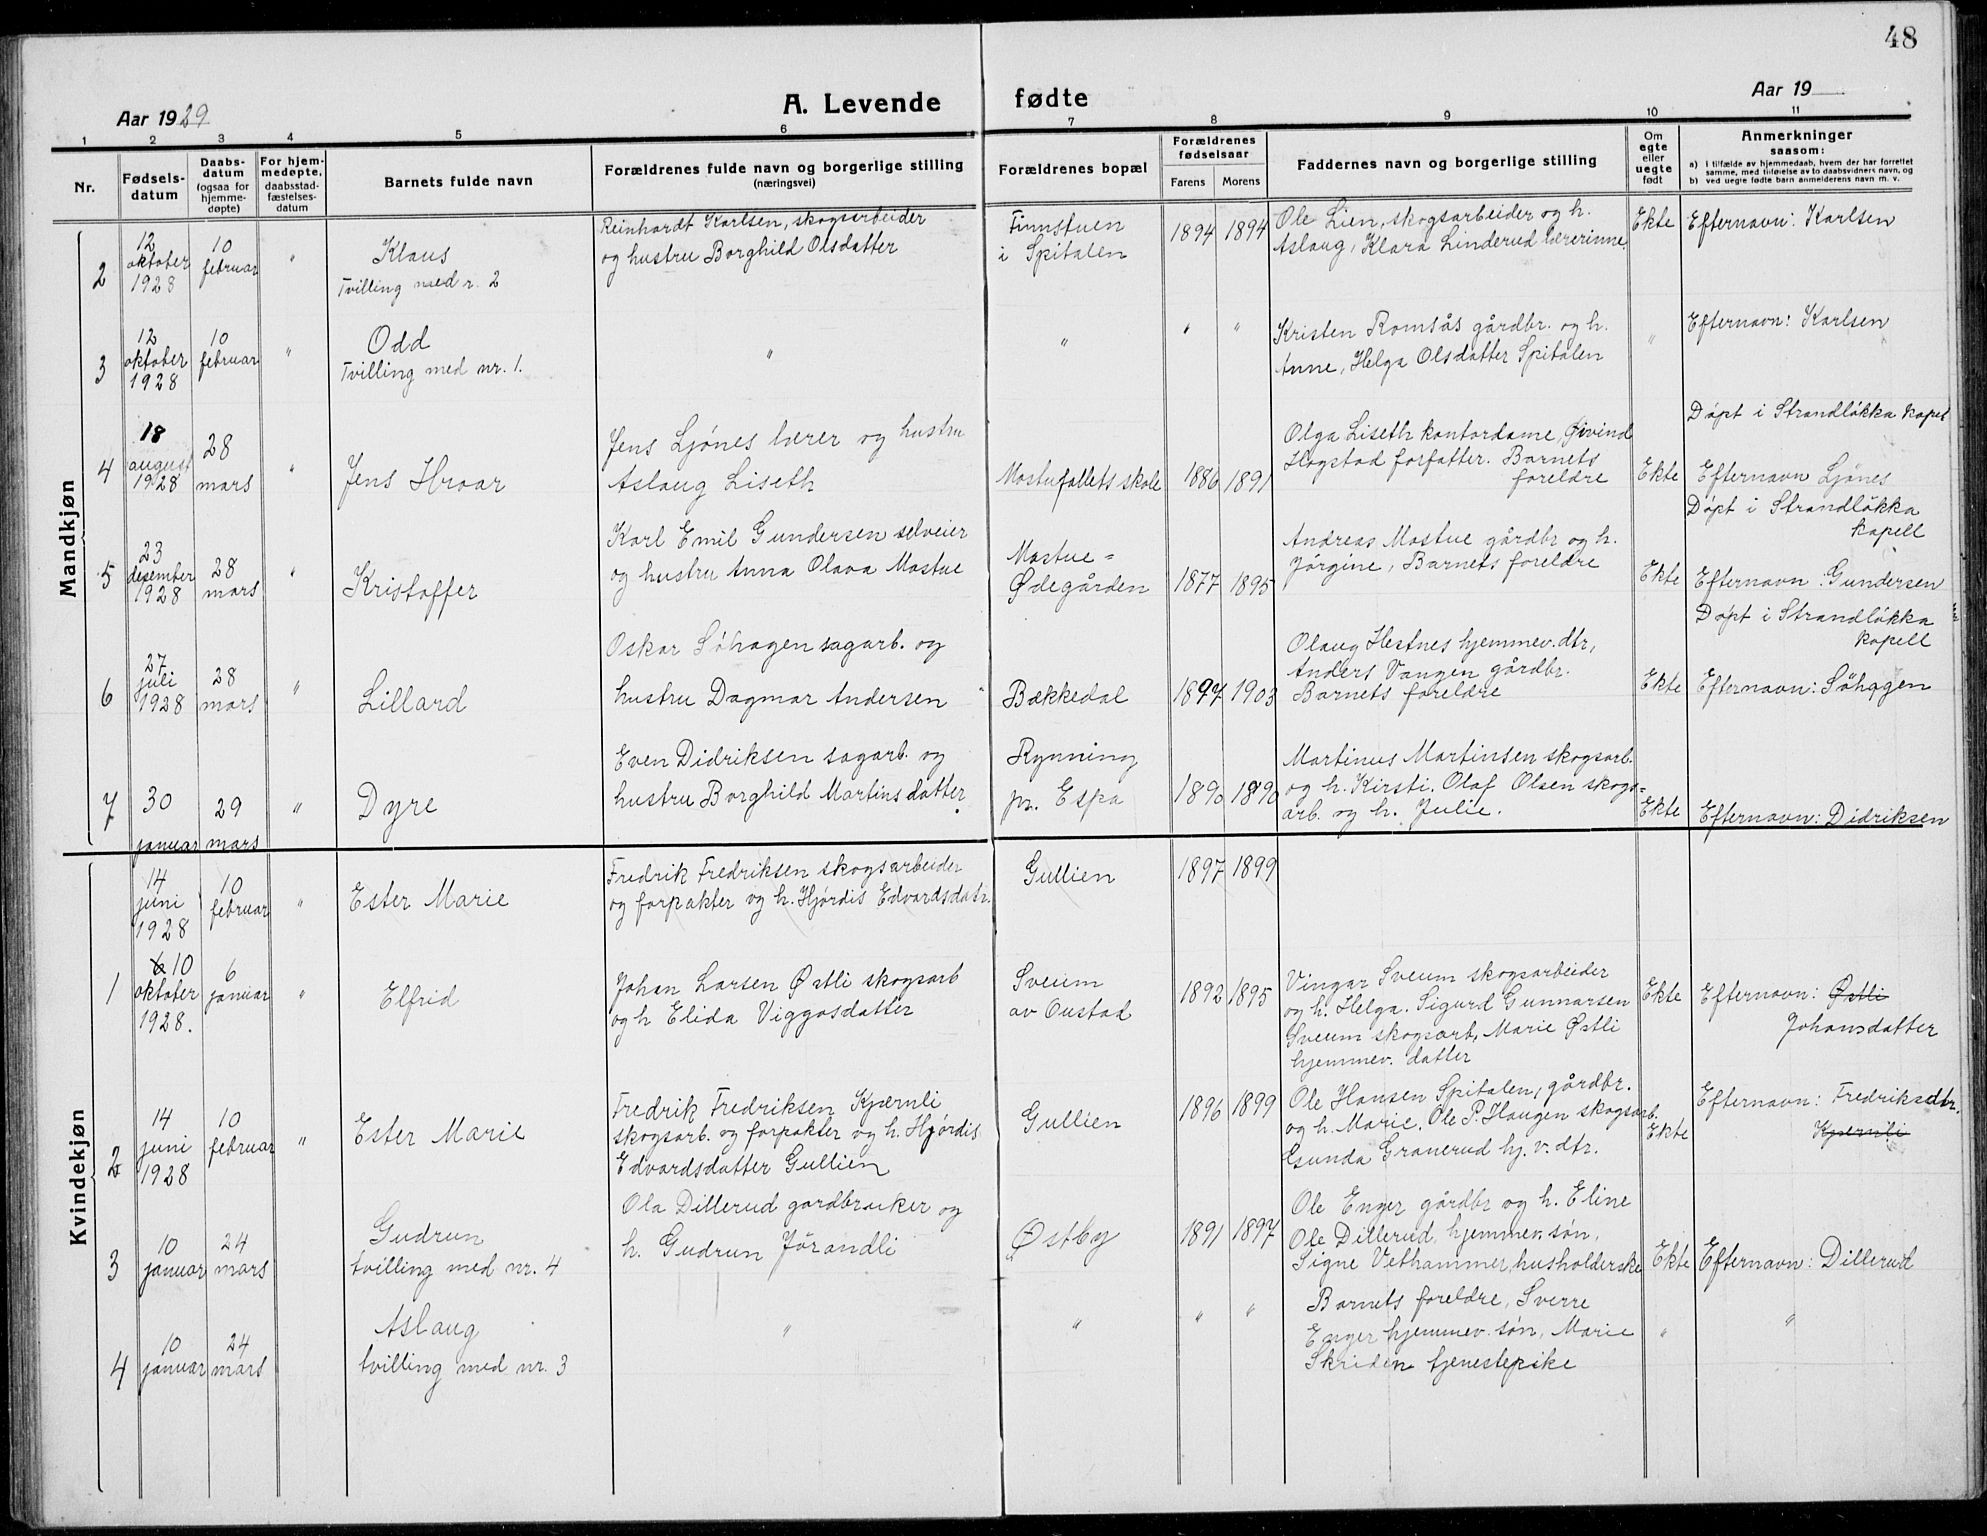 48
Aar 1929
A. Levende fødte
Aar 19
1 2 3 4 5 6 7 8 9 10 11
Nr.
Fødsels-
datum
Daabs-
datum
(ogsaa for
hjemme-
døpte)
For hjem-
medøpte,
daabsstad-
fæstelses-
datum
Barnets fulde navn
Forældrenes fulde navn og borgerlige stilling
(næringsvei)
Forældrenes bopæl
Forældrenes
fødselsaar
Farens Morens
Faddernes navn og borgerlige stilling
Om
egte
eller
uegte
født
Anmerkninger
saasom:
a) i tilfælde av hjemmedaab, hvem der har forrettet
samme, med tilføielse av to daabsvidners navn, og
b) ved uegte fødte barn anmelderens navn m. v.
Mandkjøn
2
12
oktober
1928
10
februar
"
Klaus
Tvilling med r. 2
Reinhardt Karlsen, skogsarbeider
og hustru Borghild Olsdatter
Finnstuen
i Spitalen
1894 1894
Ole Lien, skogsarbeider og h.
Aslaug, Klara Linderud lærerinne
Ekte
Efternavn: Karlsen
3
12
oktober
1928
10
februar
"
Odd
Tvilling med nr. 1.
"
"
" "
Kristen Romsås gårdbr. og h.
Anne, Helga Olsdatter Spitalen
"
Efternavn: Karlsen
4
18
august
1928
28
mars
"
Jens Hroar
Jens Ljónes lærer og hustru
Aslaug Liseth
Mostufallets skole
1886 1891
Olga Liseth kontordame, Øivind
Hogstad forfatter. Barnets
foreldre
Ekte
Døpt i Strandløkka kapel
Efternavn Ljónes
5
23
desember
1928
28
mars
"
Kristoffer
Karl Emil Gundersen selveier
og hustru Anna Olava Mostue
Mostue=
Ødegården
1877 1895
Andreas Mostue gårdbr og h.
Jørgine, Barnets foreldre
Ekte
Døpt i Strandløkka
kapell
Efternavn: Gundersen
6
27
juli
1928
28
mars
"
Lillard
Oskar Söhagen sagarb. og
hustru Dagmar Andersen
Bækkedal
1897 1903
Olaug Hestnes hjemmev. dtr,
Anders Vangen gårdbr.
Barnets foreldre
Ekte
Døpt i Strandløkka
kapell
Efternavn: Söhagen
7
30
januar
29
mars
"
Dyre
Even Didriksen sagarb. og
hustru Borghild Martinsdatter
Rynning
pr. Espa
1890 1890
Martinus Martinsen skogsarb.
og h. Kirsti. Olaf Olsen skogs=
arb. og h. Julie.
Ekte
Efternavn: Didriksen
Kvindekjøn
14
juni
1928
10
februar
"
Ester Marie
Fredrik Fredriksen skogsarbeider
og forpakter og h. Hjørdis Edvardsdatr.
Gullien
1897 1899
1
6 10
oktober
1928.
6
januar
"
Elfrid
Johan Larsen Østli skogsarb
og h Elida Viggosdatter
Sveum
av Oustad
1892 1895
Vingar Sveum skogsarbeider
og h. Helga. Sigurd Gunnarsen
Sveum skogsarb, Marie Østli
hjemmev. datter
Ekte
Efternavn: Østli
Johansdatter
2
14
juni
1928
10
februar
"
Ester Marie
Fredrik Fredriksen Kjærnli
skogsarb. og forpakter og h. Hjørdis
Edvardsdatter Gullien
Gullien
1896 1899
Ole Hansen Spitalen, gårdbr.
og h. Marie. Ole P. Haugen skogsarb.
Gunda Granerud hj. v. dtr.
Ekte
Efternavn: Fredriksdtr.
Kjærnli
3
10
januar
24
mars
Gudrun
tvilling med nr. 4
Ola Dillerud gardbruker og
h. Gudrun Jörandli
Østby
1891 1897
Ole Enger gårdbr og h. Eline
Ole Dillerud, hjemmev. søn,
Signe Vethammer, husholderske
Ekte
Efternavn: Dillerud
4
10
januar
24
mars
Aslaug
tvilling med nr. 3
"
"
" "
Barnets foreldre, Sverre
Enger hjemmev. søn, Marie
Skriden tjenestepike
"
"